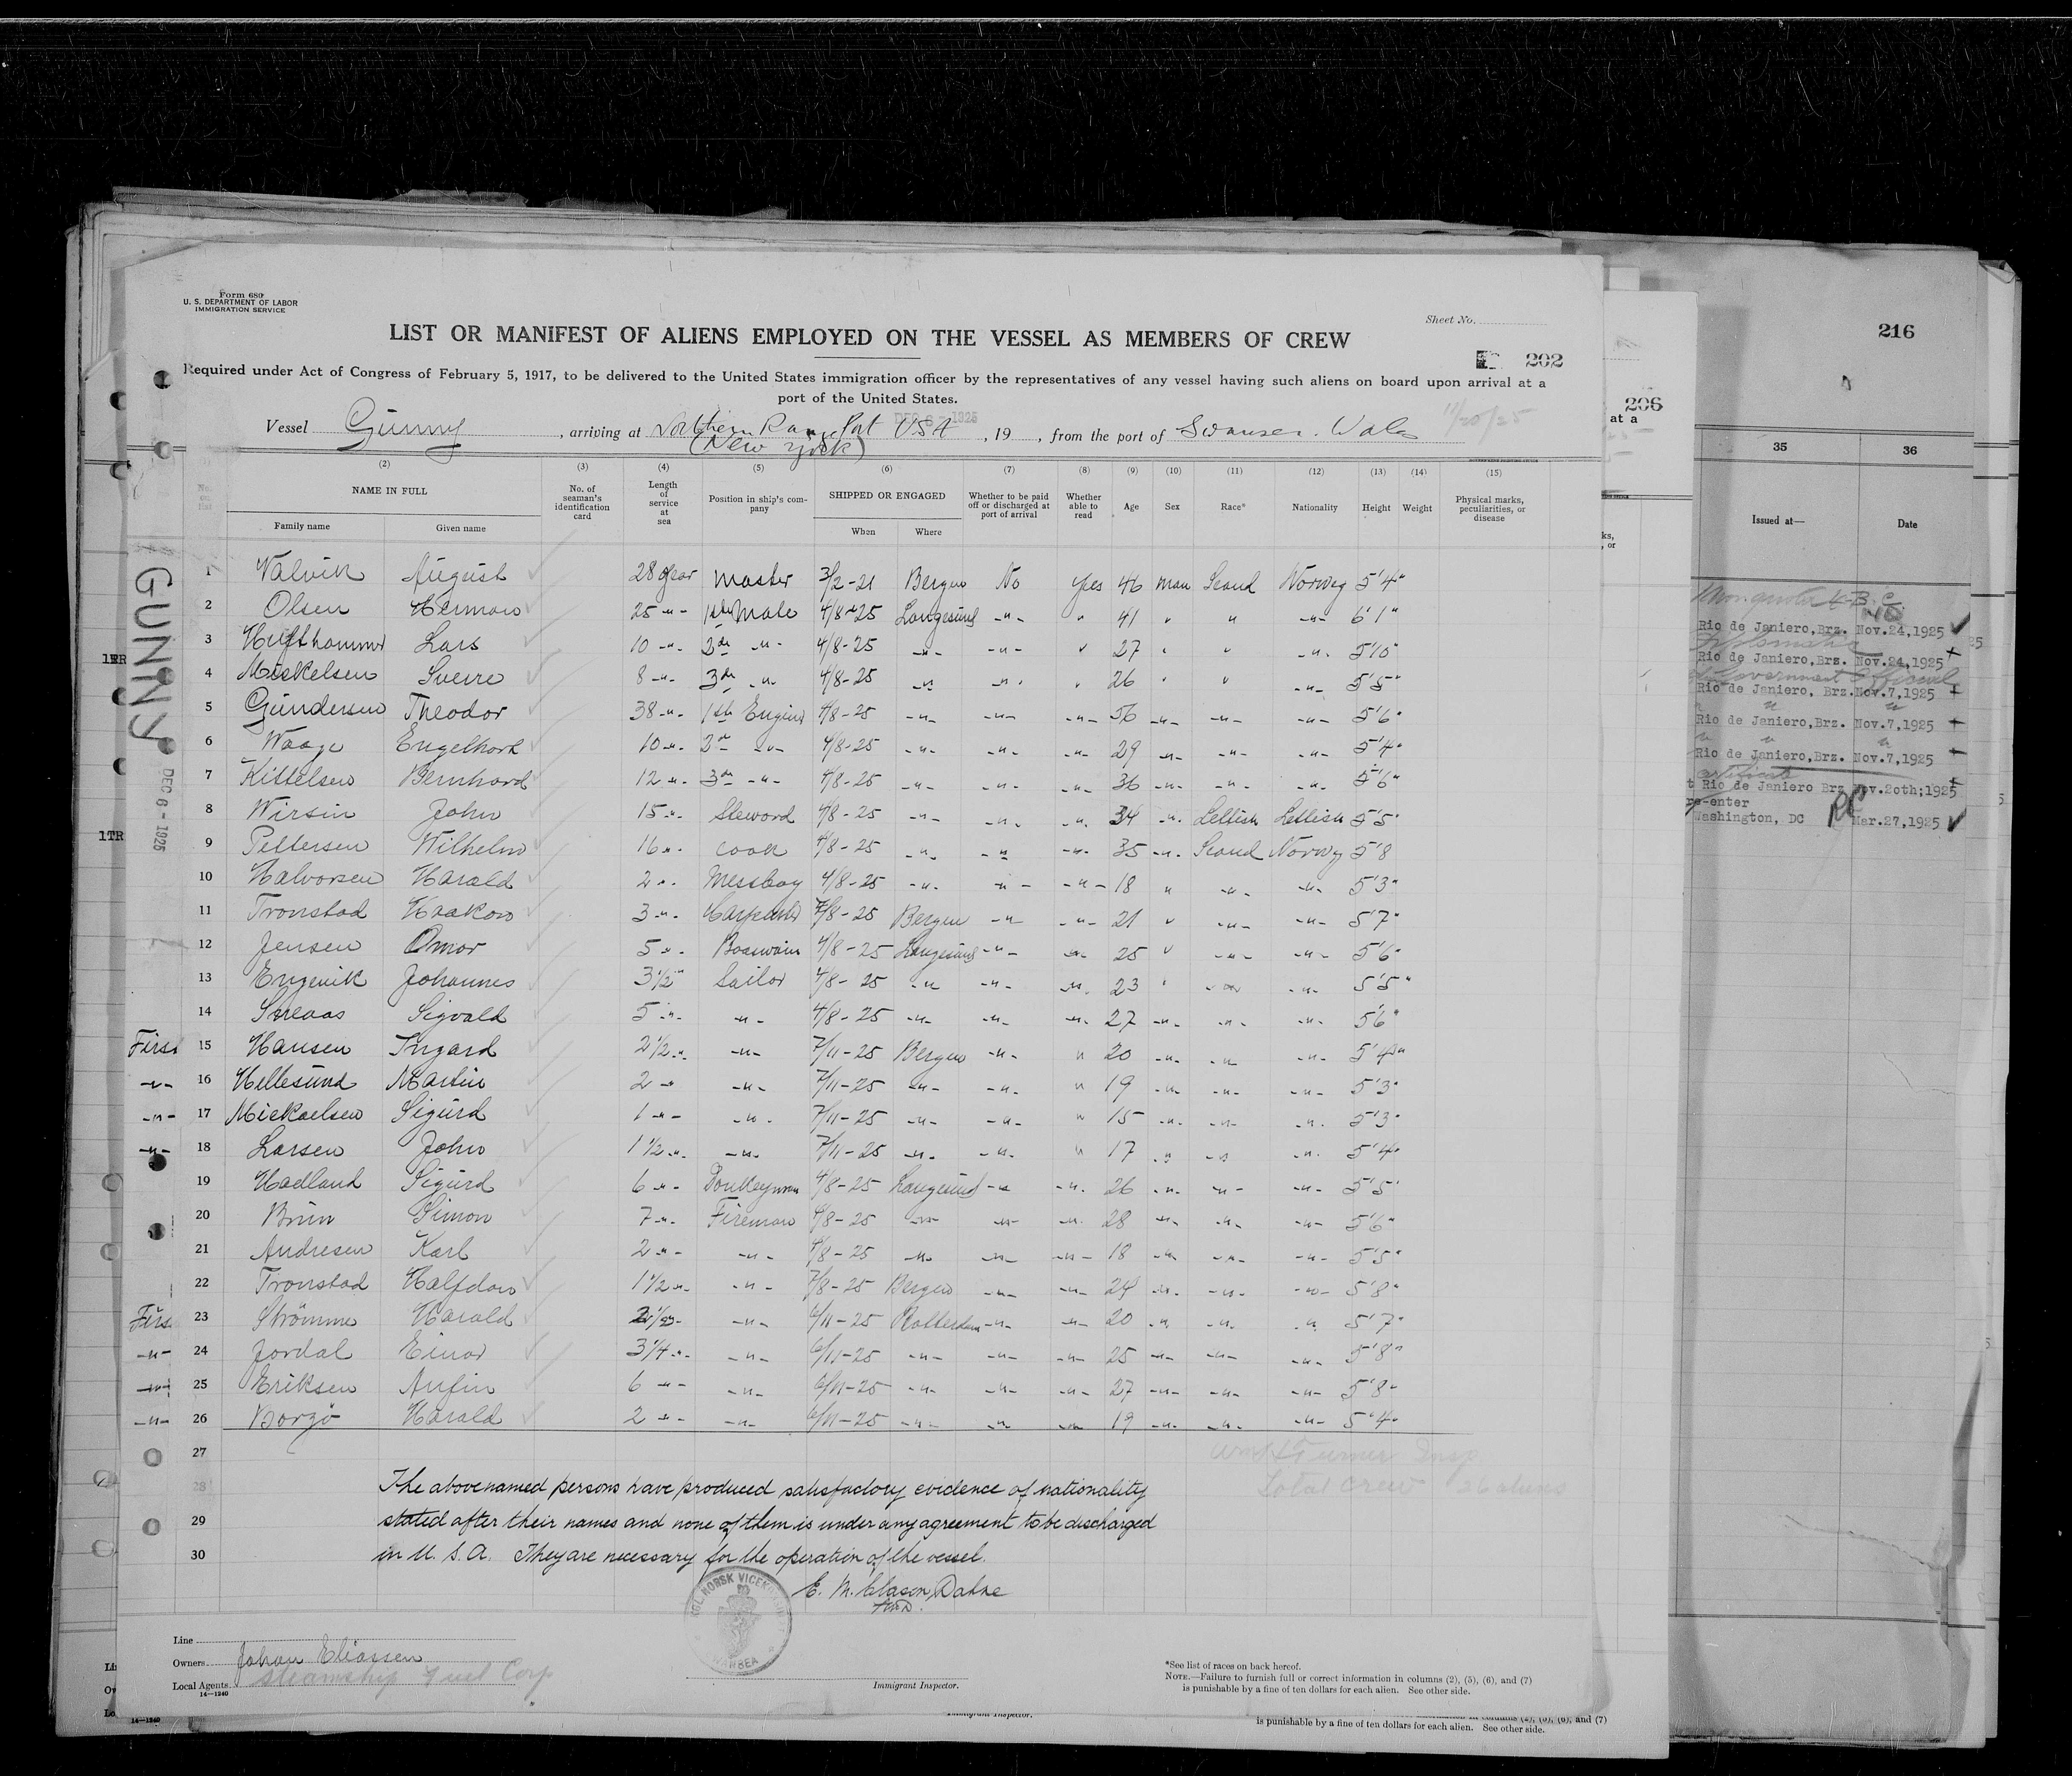 Form 680
U. S. DEPARTMENT OF LABOR
IMMIGRATION SERVICE
Sheet No.
LIST OR MANIFEST OF ALIENS EMPLOYED ON THE VESSEL AS MEMBERS OF CREW
202
Required under Act of Congress of February 5, 1917, to be delivered to the United States immigration officer by the representatives of any vessel having such aliens on board upon arrival at a
port of the United States.
Vessel Gunny, arriving at Southern Range Port USA DEC 6 - 1925, 19, from the port of Swansea. Wales 11/20/25
(New York)
(2) (3) (4) (5) (6) (7) (8) (9) (10) (11) (12) (13) (14) (15)
NAME IN FULL No. of seaman's identification card Length of service at sea Position in ship's company SHIPPED OR ENGAGED Whether to be paid off or discharged at port of arrival Whether able to read Age Sex Race* Nationality Height Weight Physical marks, peculiarities, or disease
Family name Given name When Where
GUNNY DEC 6 - 1925
1 Valvik August 28 year Master 3/2-21 Bergen No Yes 46 man Scand Norweg 5'4"
2 Olsen Herman 25 -"- 1st Mate 4/8-25 Langesund -"- " 41 " " -"- 6'1"
3 Lars 10 -"- 2nd -"- 4/8-25 -"- -"- " 27 " " -"- 5'10"
4 Mikkelsen Sverre 8 -"- 3rd -"- 4/8-25 -"- -"- " 26 " " -"- 5'5"
5 Gundersen Theodor 38 -"- 1st Engine 4/8-25 -"- -"- -"- 56 -"- -"- -"- 5'6"
6 Waage Engelhart 10 -"- 2nd -"- 4/8-25 -"- -"- -"- 29 -"- -"- -"- 5'4"
7 Kittelsen Bernhard 12 -"- 3rd -"- 4/8-25 -"- -"- -"- 36 -"- -"- -"- 5'6"
8 Wirsin John 15 -"- Steward 4/8-25 -"- -"- -"- 34 -"- Lettish Lettish 5'5"
9 Pettersen Wilhelm 16 -"- Cook 4/8-25 -"- -"- -"- 35 -"- Scand Norweg 5'8
10 Halvorsen Harald 2 -"- Messboy 4/8-25 -"- -"- -"- 18 " -"- -"- 5'3"
11 Tronstad Haakon 3 -"- 7/8-25 Bergen -"- -"- 21 " -"- -"- 5'7"
12 Jensen Omar 5 -"- Boaswain 4/8-25 Langesund -"- -"- 25 " -"- -"- 5'6"
13 Engevik Johannes 3 1/2 " Sailor 4/8-25 -"- -"- -"- 23 " -"- -"- 5'5"
14 Sigvald 5 -"- -"- 4/8-25 -"- -"- -"- 27 -"- -"- -"- 5'6"
Firs 15 Hansen Ingard 2 1/2 -"- -"- 7/11-25 Bergen -"- " 20 -"- -"- -"- 5'4"
-"- 16 Hellesund Martin 2 -"- -"- 7/11-25 -"- -"- " 19 -"- -"- -"- 5'3"
-"- 17 Mickaelsen Sigurd 1 -"- -"- 7/11-25 -"- -"- " 15 -"- -"- -"- 5'3"
-"- 18 Larsen John 1 1/2 -"- -"- 7/11-25 -"- -"- " 17 -"- -"- -"- 5'4"
19 Hadland Sigurd 6 -"- Donkeyman 4/8-25 Langesund -"- -"- 26 -"- -"- -"- 5'5"
20 Brun Simon 7 -"- Fireman 4/8-25 -"- -"- -"- 28 -"- -"- -"- 5'6"
21 Andresen Karl 2 -"- -"- 4/8-25 -"- -"- -"- 18 -"- -"- -"- 5'5"
22 Tronstad Halfdan 1 1/2 -"- -"- 7/8-25 Bergen -"- -"- 24 -"- -"- -"- 5'8"
Firs 23 Strömme Harald -"- 6/11-25 Rotterdam -"- -"- 20 -"- -"- -"- 5'7"
-"- 24 Jordal Einar 3 1/4 -"- -"- 6/11-25 -"- -"- -"- 25 -"- -"- -"- 5'8"
-"- 25 Eriksen Anfin 6 -"- -"- 6/11-25 -"- -"- -"- 27 -"- -"- -"- 5'8"
-"- 26 Borgö Harald 2 -"- -"- 6/11-25 -"- -"- -"- 19 -"- -"- -"- 5'4"
27
Turner Insp
28 The abovenamed persons have produced satisfactory evidence of nationality
Total crew 26 aliens
29 stated after their names and none of them is under any agreement to be discharged
30 in U. S. A. They are necessary for the operation of the vessel.
E. M. Clason Dahne
KGL. NORSK VICEKONSULAT
SWANSEA
Line
Owners Johan Eliassen
Local Agents Steamship Fuel Corp
14—1240
Immigrant Inspector.
*See list of races on back hereof.
NOTE.—Failure to furnish full or correct information in columns (2), (5), (6), and (7)
is punishable by a fine of ten dollars for each alien. See other side.
206
at a
216
35 36
Issued at— Date
Rio de Janiero,Brz. Nov.24,1925
Diplomatic
Rio de Janiero,Brz. Nov.24,1925
Government Official
Rio de Janiero, Brz.Nov.7,1925
Rio de Janiero,Brz. Nov.7,1925
Rio de Janiero,Brz. Nov.7,1925
Rio de Janiero Brz Nov.20th;1925
re-enter
Washington, DC Mar.27,1925
1TR
14—1240
Immigrant Inspector.
is punishable by a fine of ten dollars for each alien. See other side.